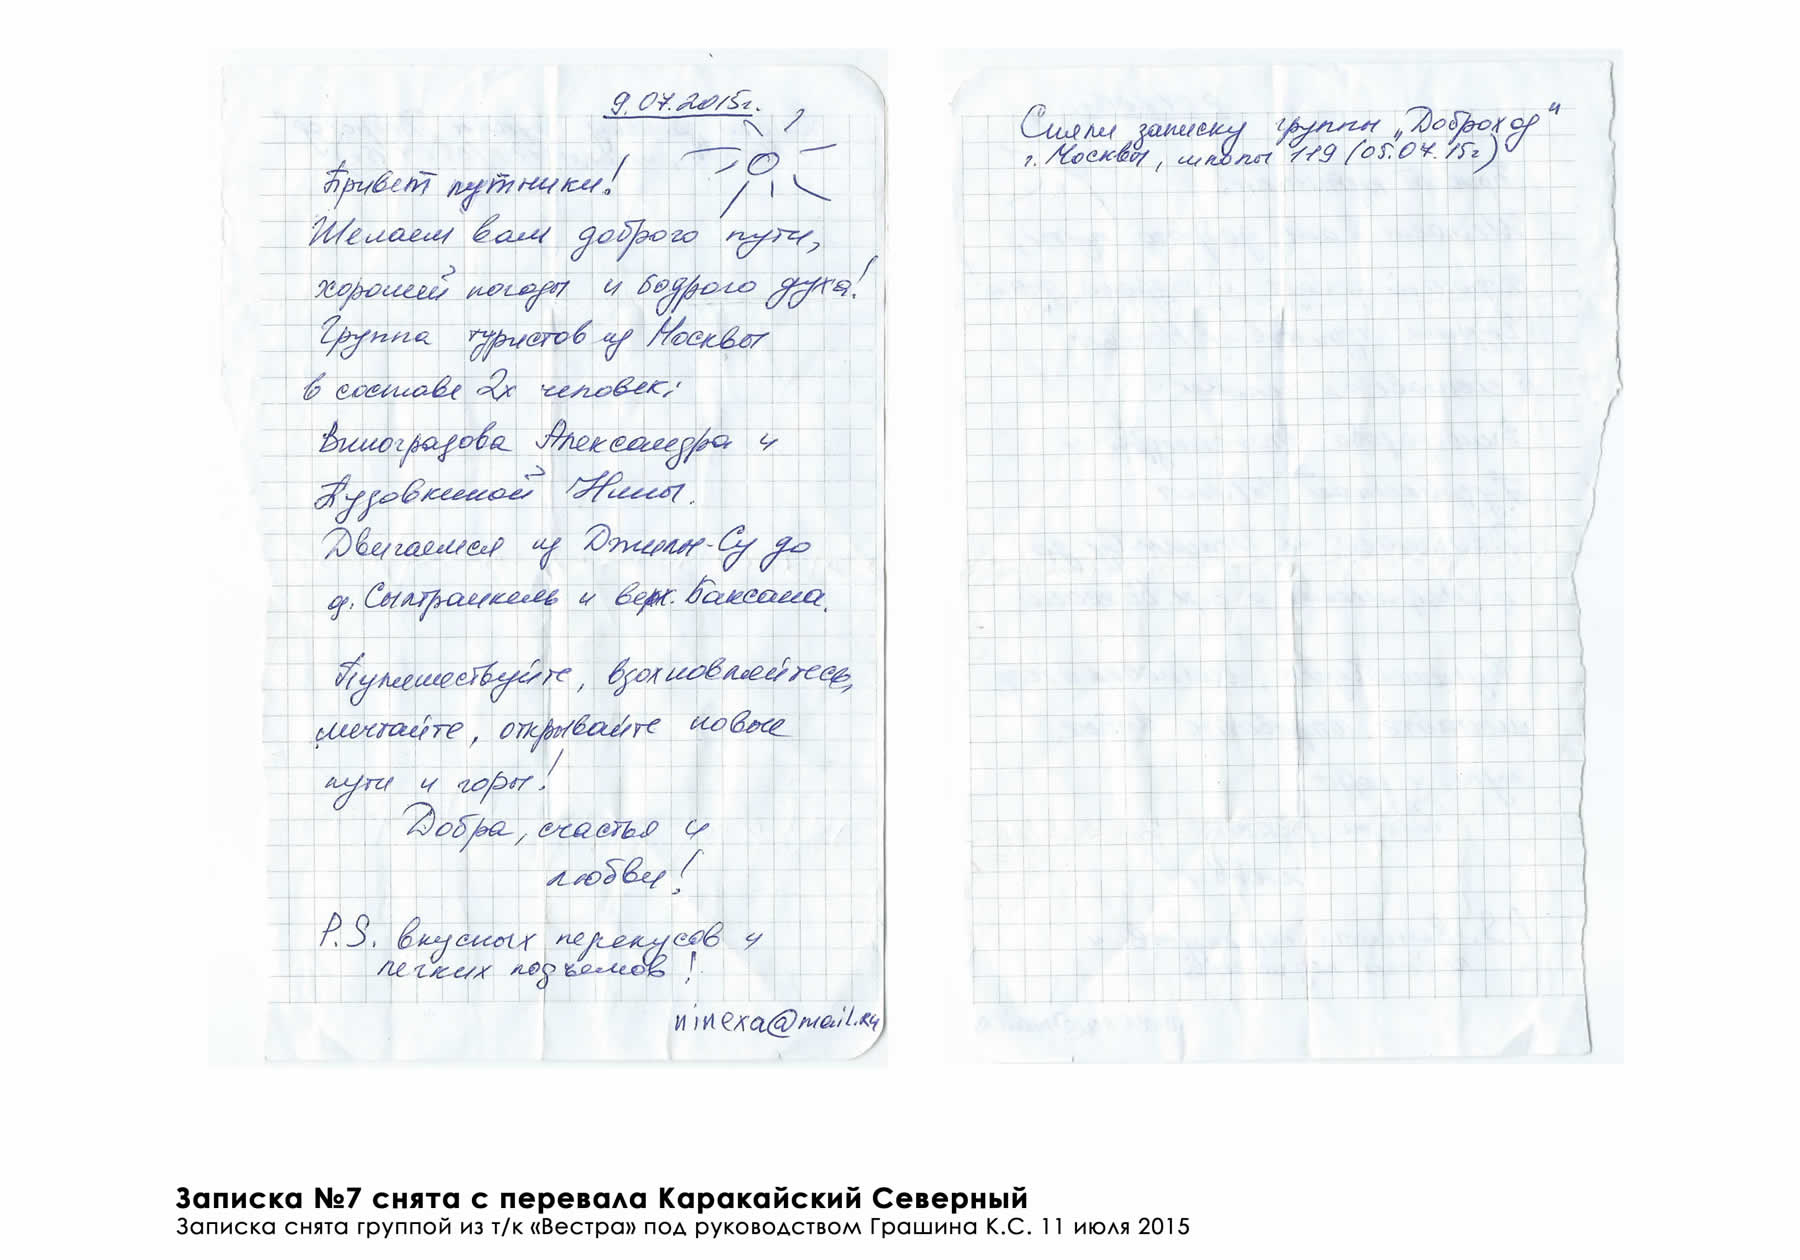 9.07.2015г.
Привет путники!
Желаем вам доброго пути,
хорошей погоды и бодрого духа!
Группа туристов из Москвы
в составе 2х человек:
Виноградова Александра и
Пузовкиной Нины.
Двигаемся из Джилы-Су до
д. Сылтранкель и верх. Баксана.
Путешествуйте, вдохновляйтесь,
мечтайте, открывайте новые
пути и горы!
Добра, счастья и
любви!
P.S. вкусных перекусов и
легких подъемов!
ninexa@mail.ru
Сняли записку группы „Доброход"
г. Москвы, школы 119 (05.07.15г)
Записка №7 снята с перевала Каракайский Северный
Записка снята группой из т/к «Вестра» под руководством Грашина К.С. 11 июля 2015